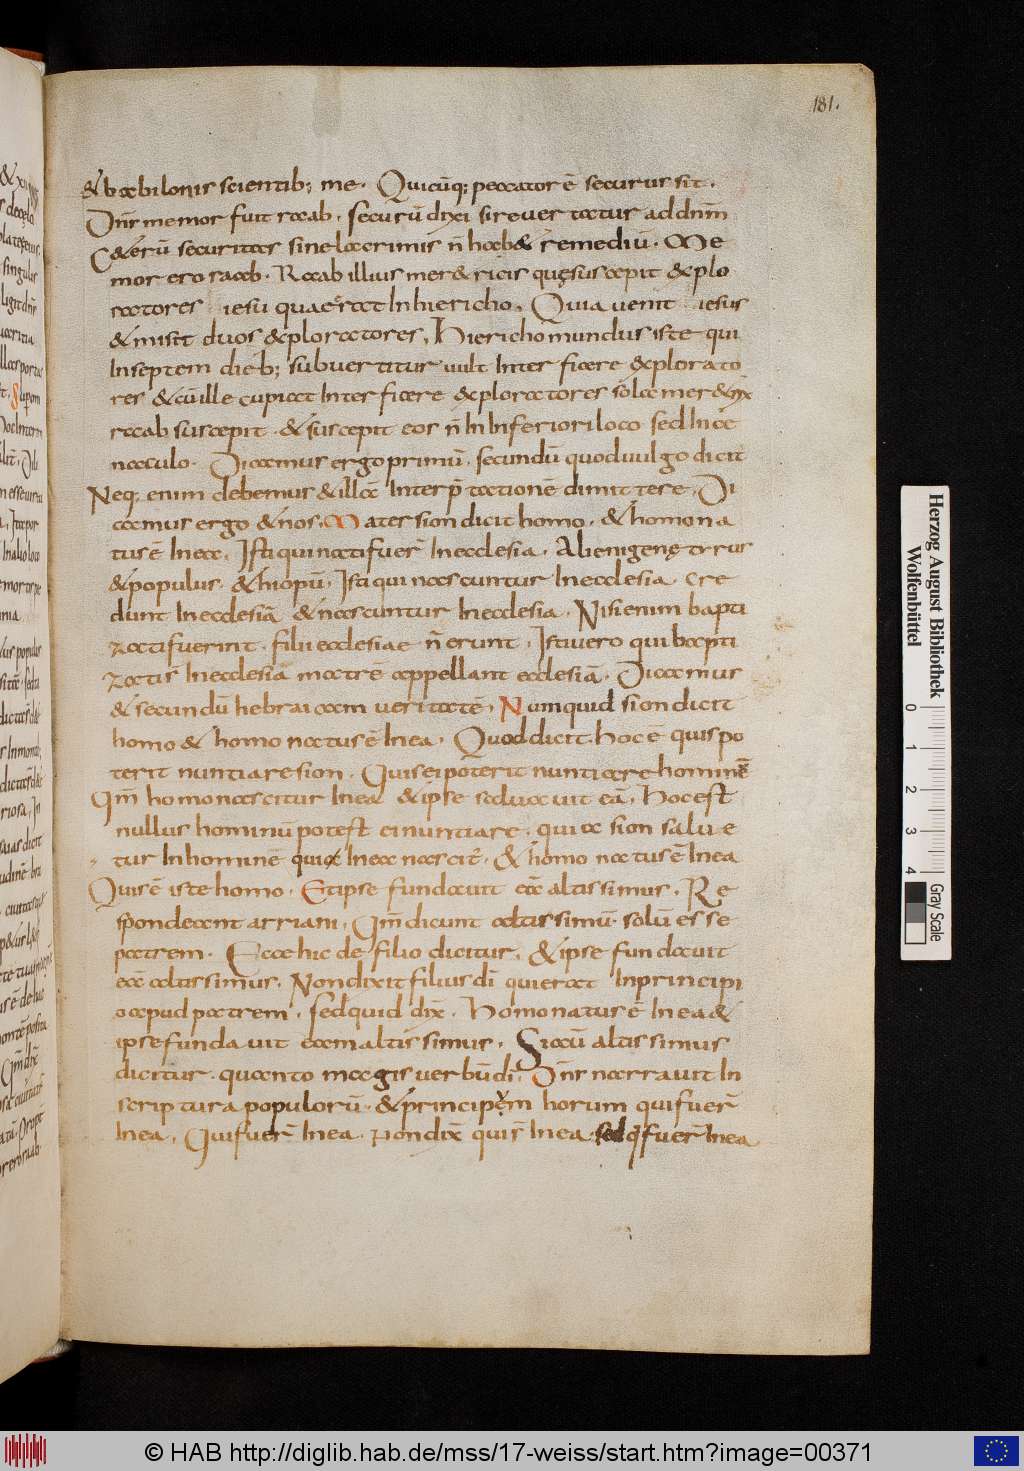 181.
& babilonis scientib; me. Quicūq; peccator ē securus sit.
Dn̄s memor fuit raab. securū dixi si reuertatur ad dn̄m
C&erū securitas sine lacrimis n̄ hab& remediū. Me
mor ero raab. Raab illius mer&ricis quę suscepit explo
ratores iesu qua erat In hiericho. Quia uenit iesus
& misit duos exploratores. Hiericho mundus iste qui
In septem dieb; subuertitur uult Inter ficere explorato
res & cū ille cupiat Inter ficere exploratores sola mer&rix
raab suscepit. & suscepit eos n̄ In Inferiori loco sed In ce
naculo. Dicamus ergo primū. secundū quod uulgo dicit
Neq; enim debemus & illā Interp̄tationē dimittere. Di
camus ergo & nos. Mater sion dicit homo. & homo na
tus ē In ea. Isti qui nati fuer̄ In ecclesia. Alienigenę tyrus
& populus &hiopū. Isti qui nascuntur In ecclesia. Cre
dunt In ecclesiā & nascuntur In ecclesia. Nisi enim bapti
zati fuerint. filii ecclesiae n̄ erunt. Isti uero qui bapti
zatis In ecclesiā matrē appellant ecclesiā. Dicamus
& secundū hebraicam ueritatē. Numquid sion dicit
homo & homo natus ē In ea. Quod dicit. hoc ē quis po
terit nuntiare sion. Quis ei poterit nuntiare hominē
Qm̄ homo nascitur In ea & ipse aedificauit eā. Hoc est
nullus hominū potest ei nuntiare. qui ac sion salue
tur In hominē quia In ea nascit̄. & homo natus ē In ea
Quis ē iste homo. Et ipse fundauit eā altissimus. Re
spondeant arriani. Qm̄ dicunt altissimū solū esse
patrem. Ecce hic de filio dicitur. & ipse fundauit
eā altissimus. Non dixit filius dī qui erat In principi
o apud patrem. sed quid dix̄. Homo natus ē In ea &
ipse fundauit eam altissimus. Si ō altissimus
dicitur. quanto magis uerbū dī. Dn̄s narrauit In
scriptura populorū. & principum horum qui fuer̄
In ea. Qui fuer̄ In ea. Non dix̄ qui s̄ In ea sed q̄ fuer̄ In ea
Herzog August Bibliothek
Wolfenbüttel
0 1 2 3 4
Gray Scale
© HAB http://diglib.hab.de/mss/17-weiss/start.htm?image=00371